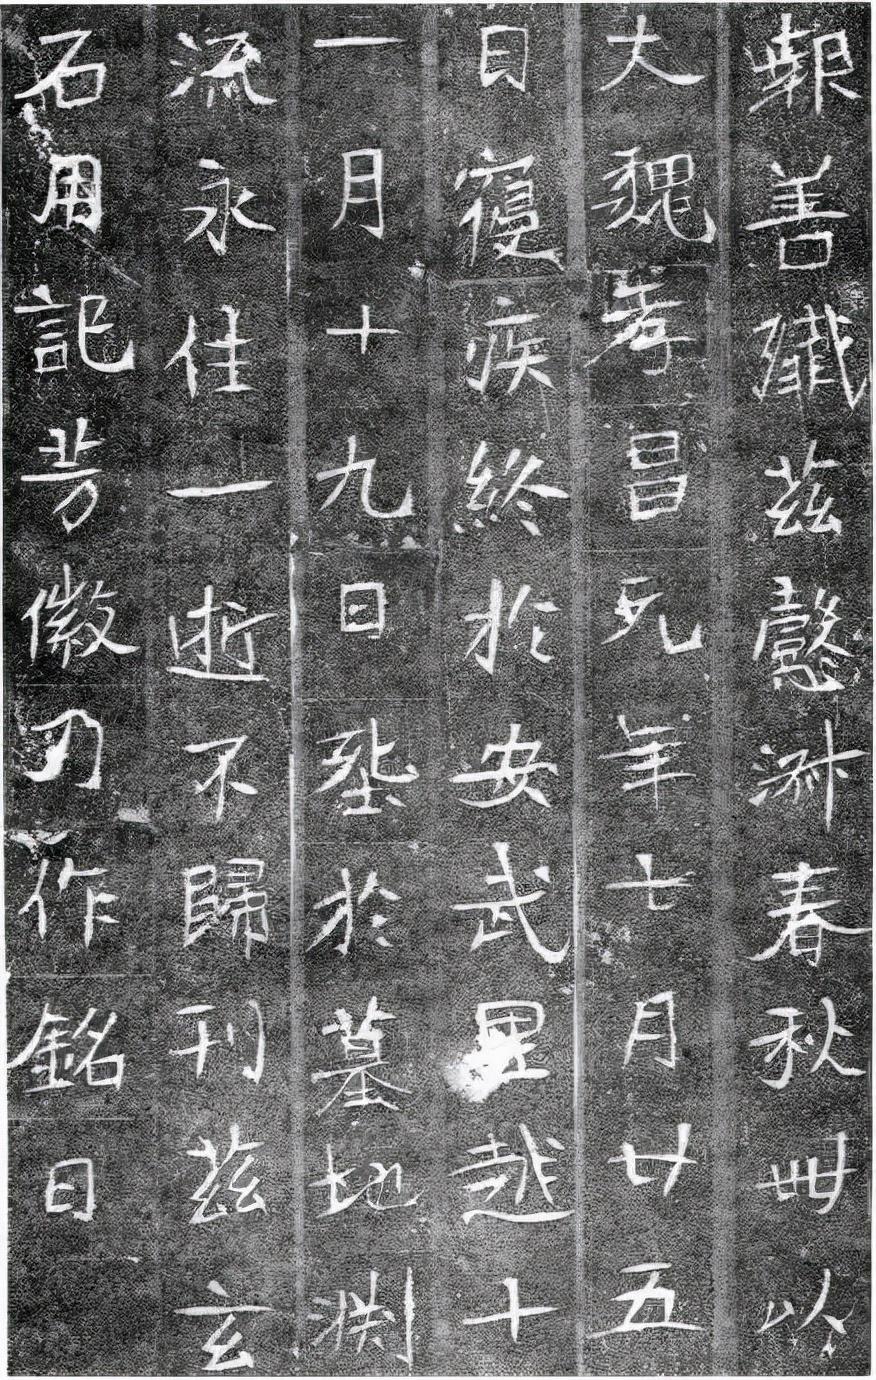 報善殲茲懿淑春秋卌以
大魏孝昌元年七月廿五
日寢疾終於安武里越十
一月十九日塟於墓地淵
流永往一逝不歸刊茲玄
石用記芳徽乃作銘曰